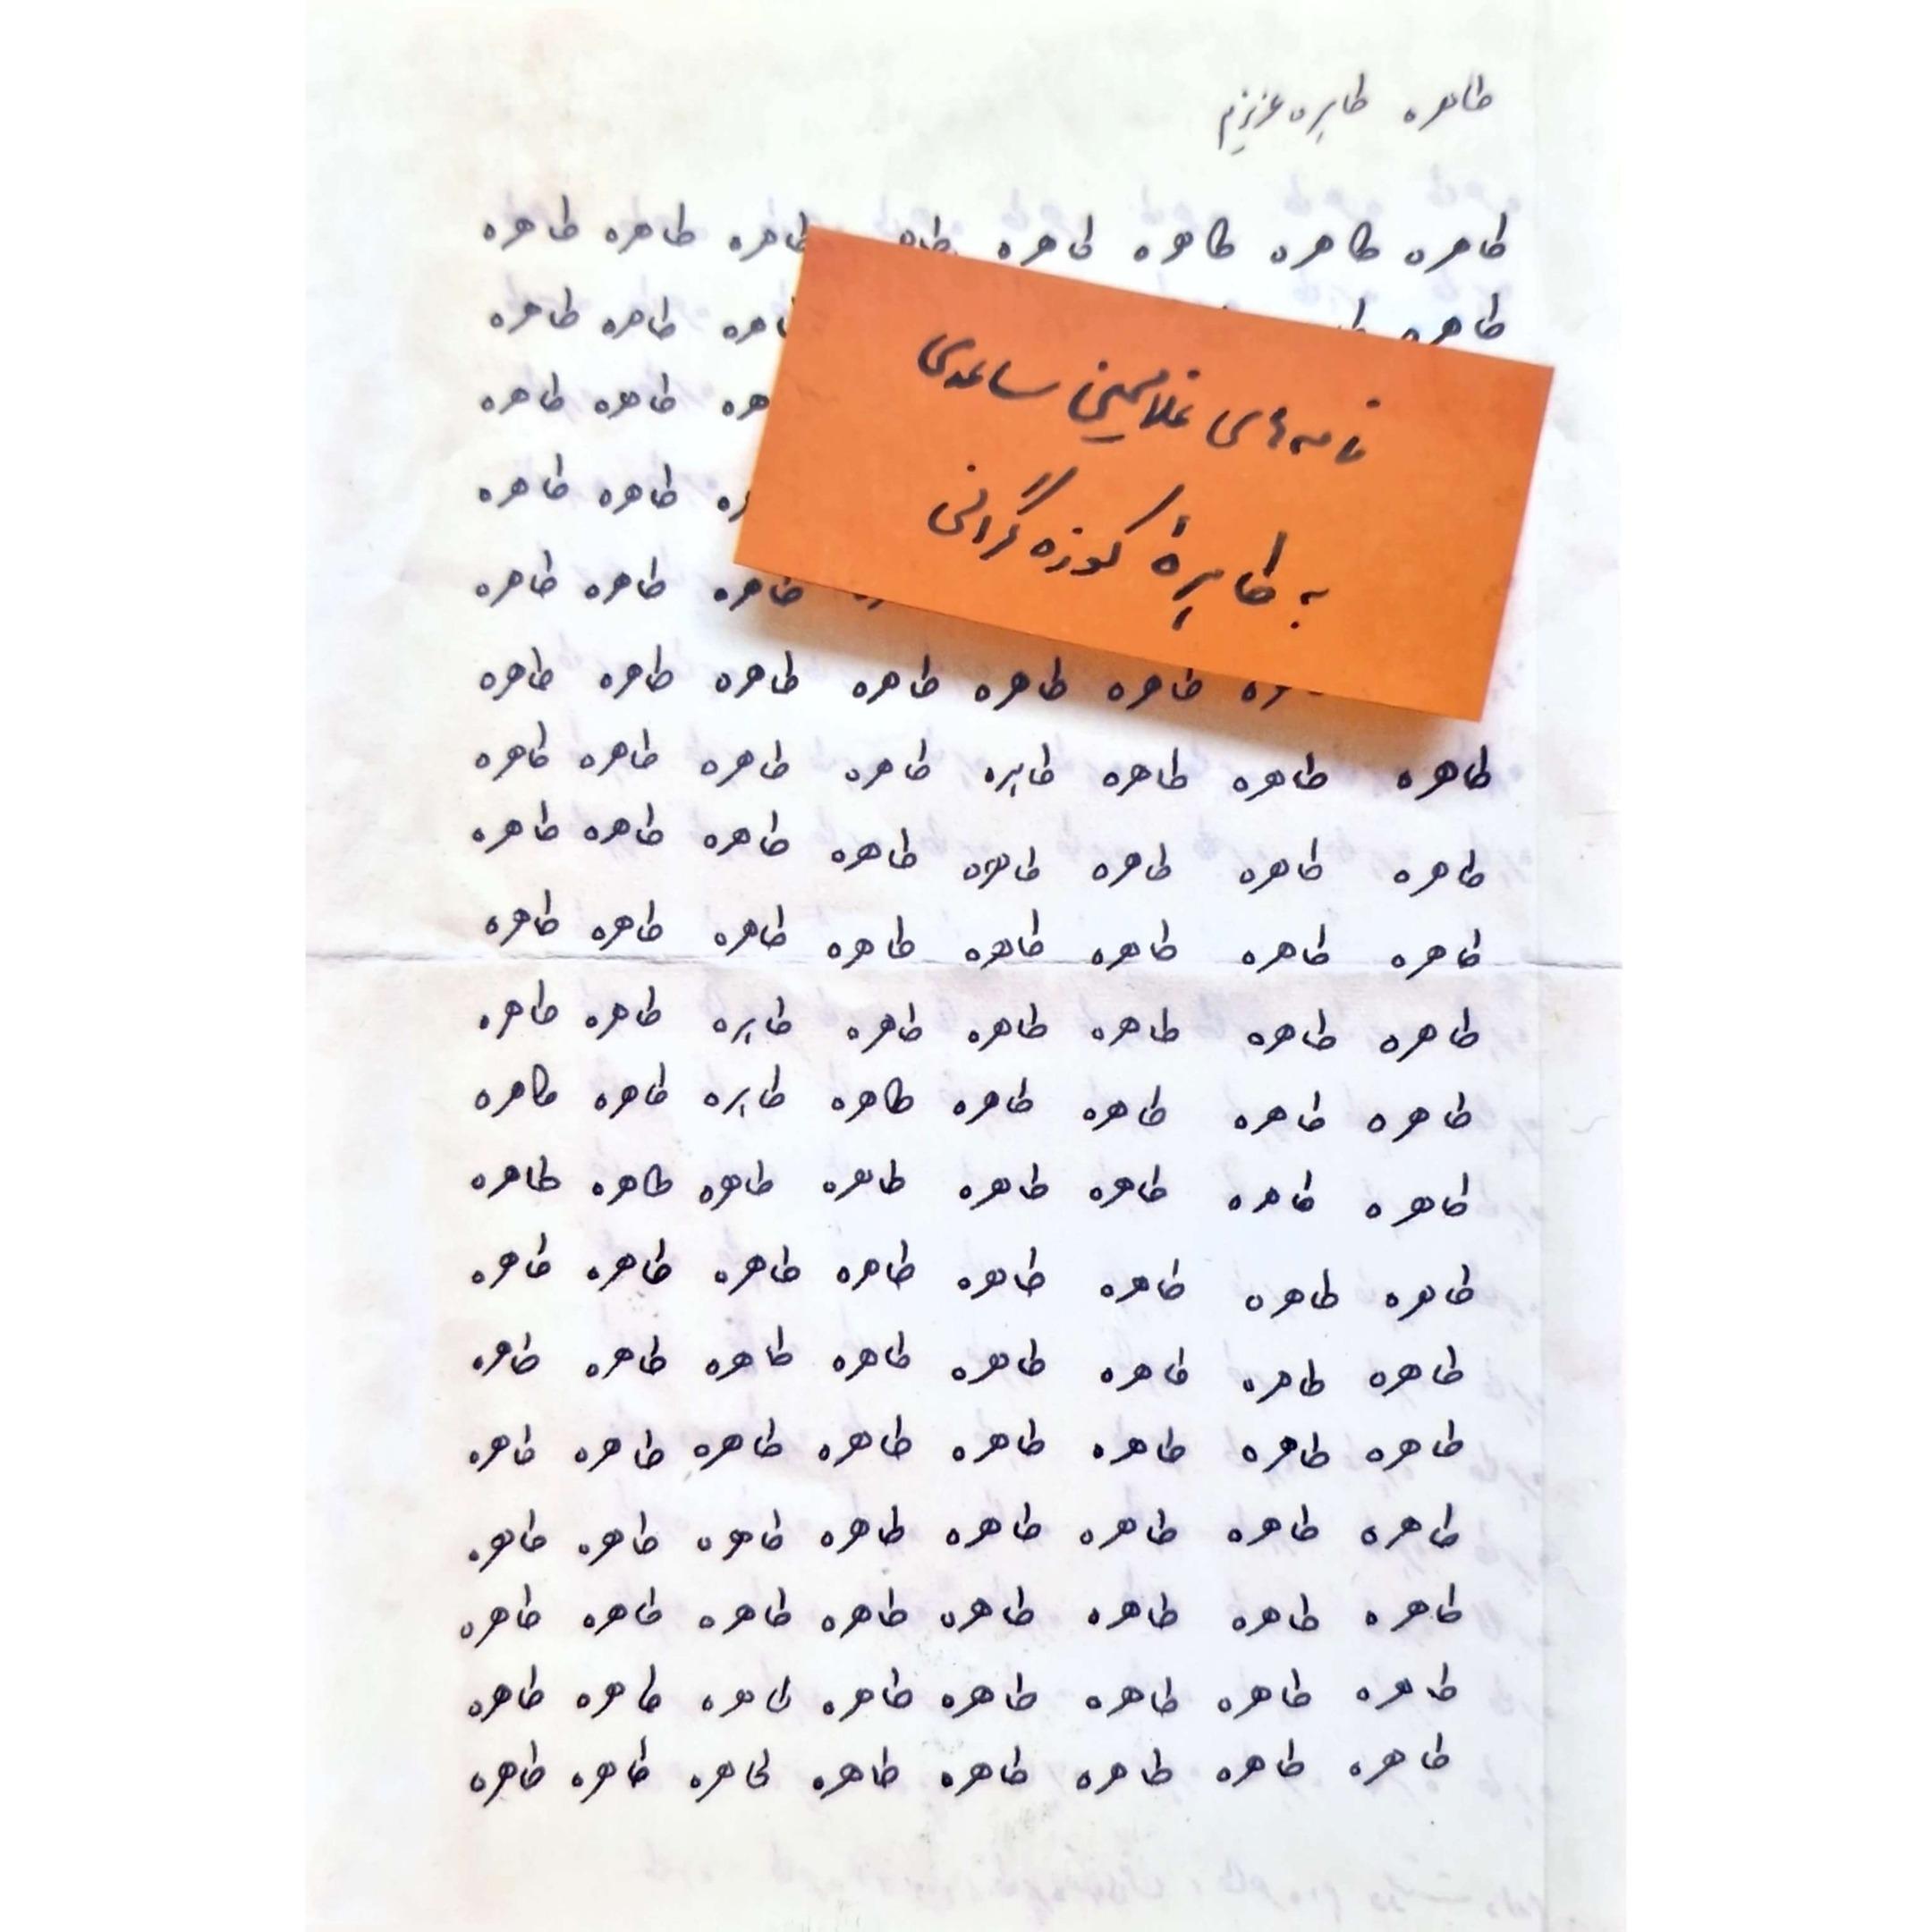 طاهره طاهره عزیزم
طاهره طاهره طاهره طاهره طاهره طاهره طاهره
طاهره طاهره طاهره
طاهره طاهره
طاهره طاهره
طاهره طاهره طاهره
طاهره طاهره طاهره طاهره طاهره طاهره
طاهره طاهره طاهره طاهره طاهره طاهره طاهره طاهره
طاهره طاهره طاهره طاهره طاهره طاهره طاهره طاهره
طاهره طاهره طاهره طاهره طاهره طاهره طاهره طاهره
طاهره طاهره طاهره طاهره طاهره طاهره طاهره طاهره
طاهره طاهره طاهره طاهره طاهره طاهره طاهره طاهره
طاهره طاهره طاهره طاهره طاهره طاهره طاهره طاهره
طاهره طاهره طاهره طاهره طاهره طاهره طاهره طاهره
طاهره طاهره طاهره طاهره طاهره طاهره طاهره طاهره
طاهره طاهره طاهره طاهره طاهره طاهره طاهره طاهره
طاهره طاهره طاهره طاهره طاهره طاهره طاهره طاهره
طاهره طاهره طاهره طاهره طاهره طاهره طاهره طاهره
طاهره طاهره طاهره طاهره طاهره طاهره طاهره طاهره
طاهره طاهره طاهره طاهره طاهره طاهره طاهره طاهره
نامه‌های غلامحسین ساعدی
به طاهرهٔ کوزه‌گرانی